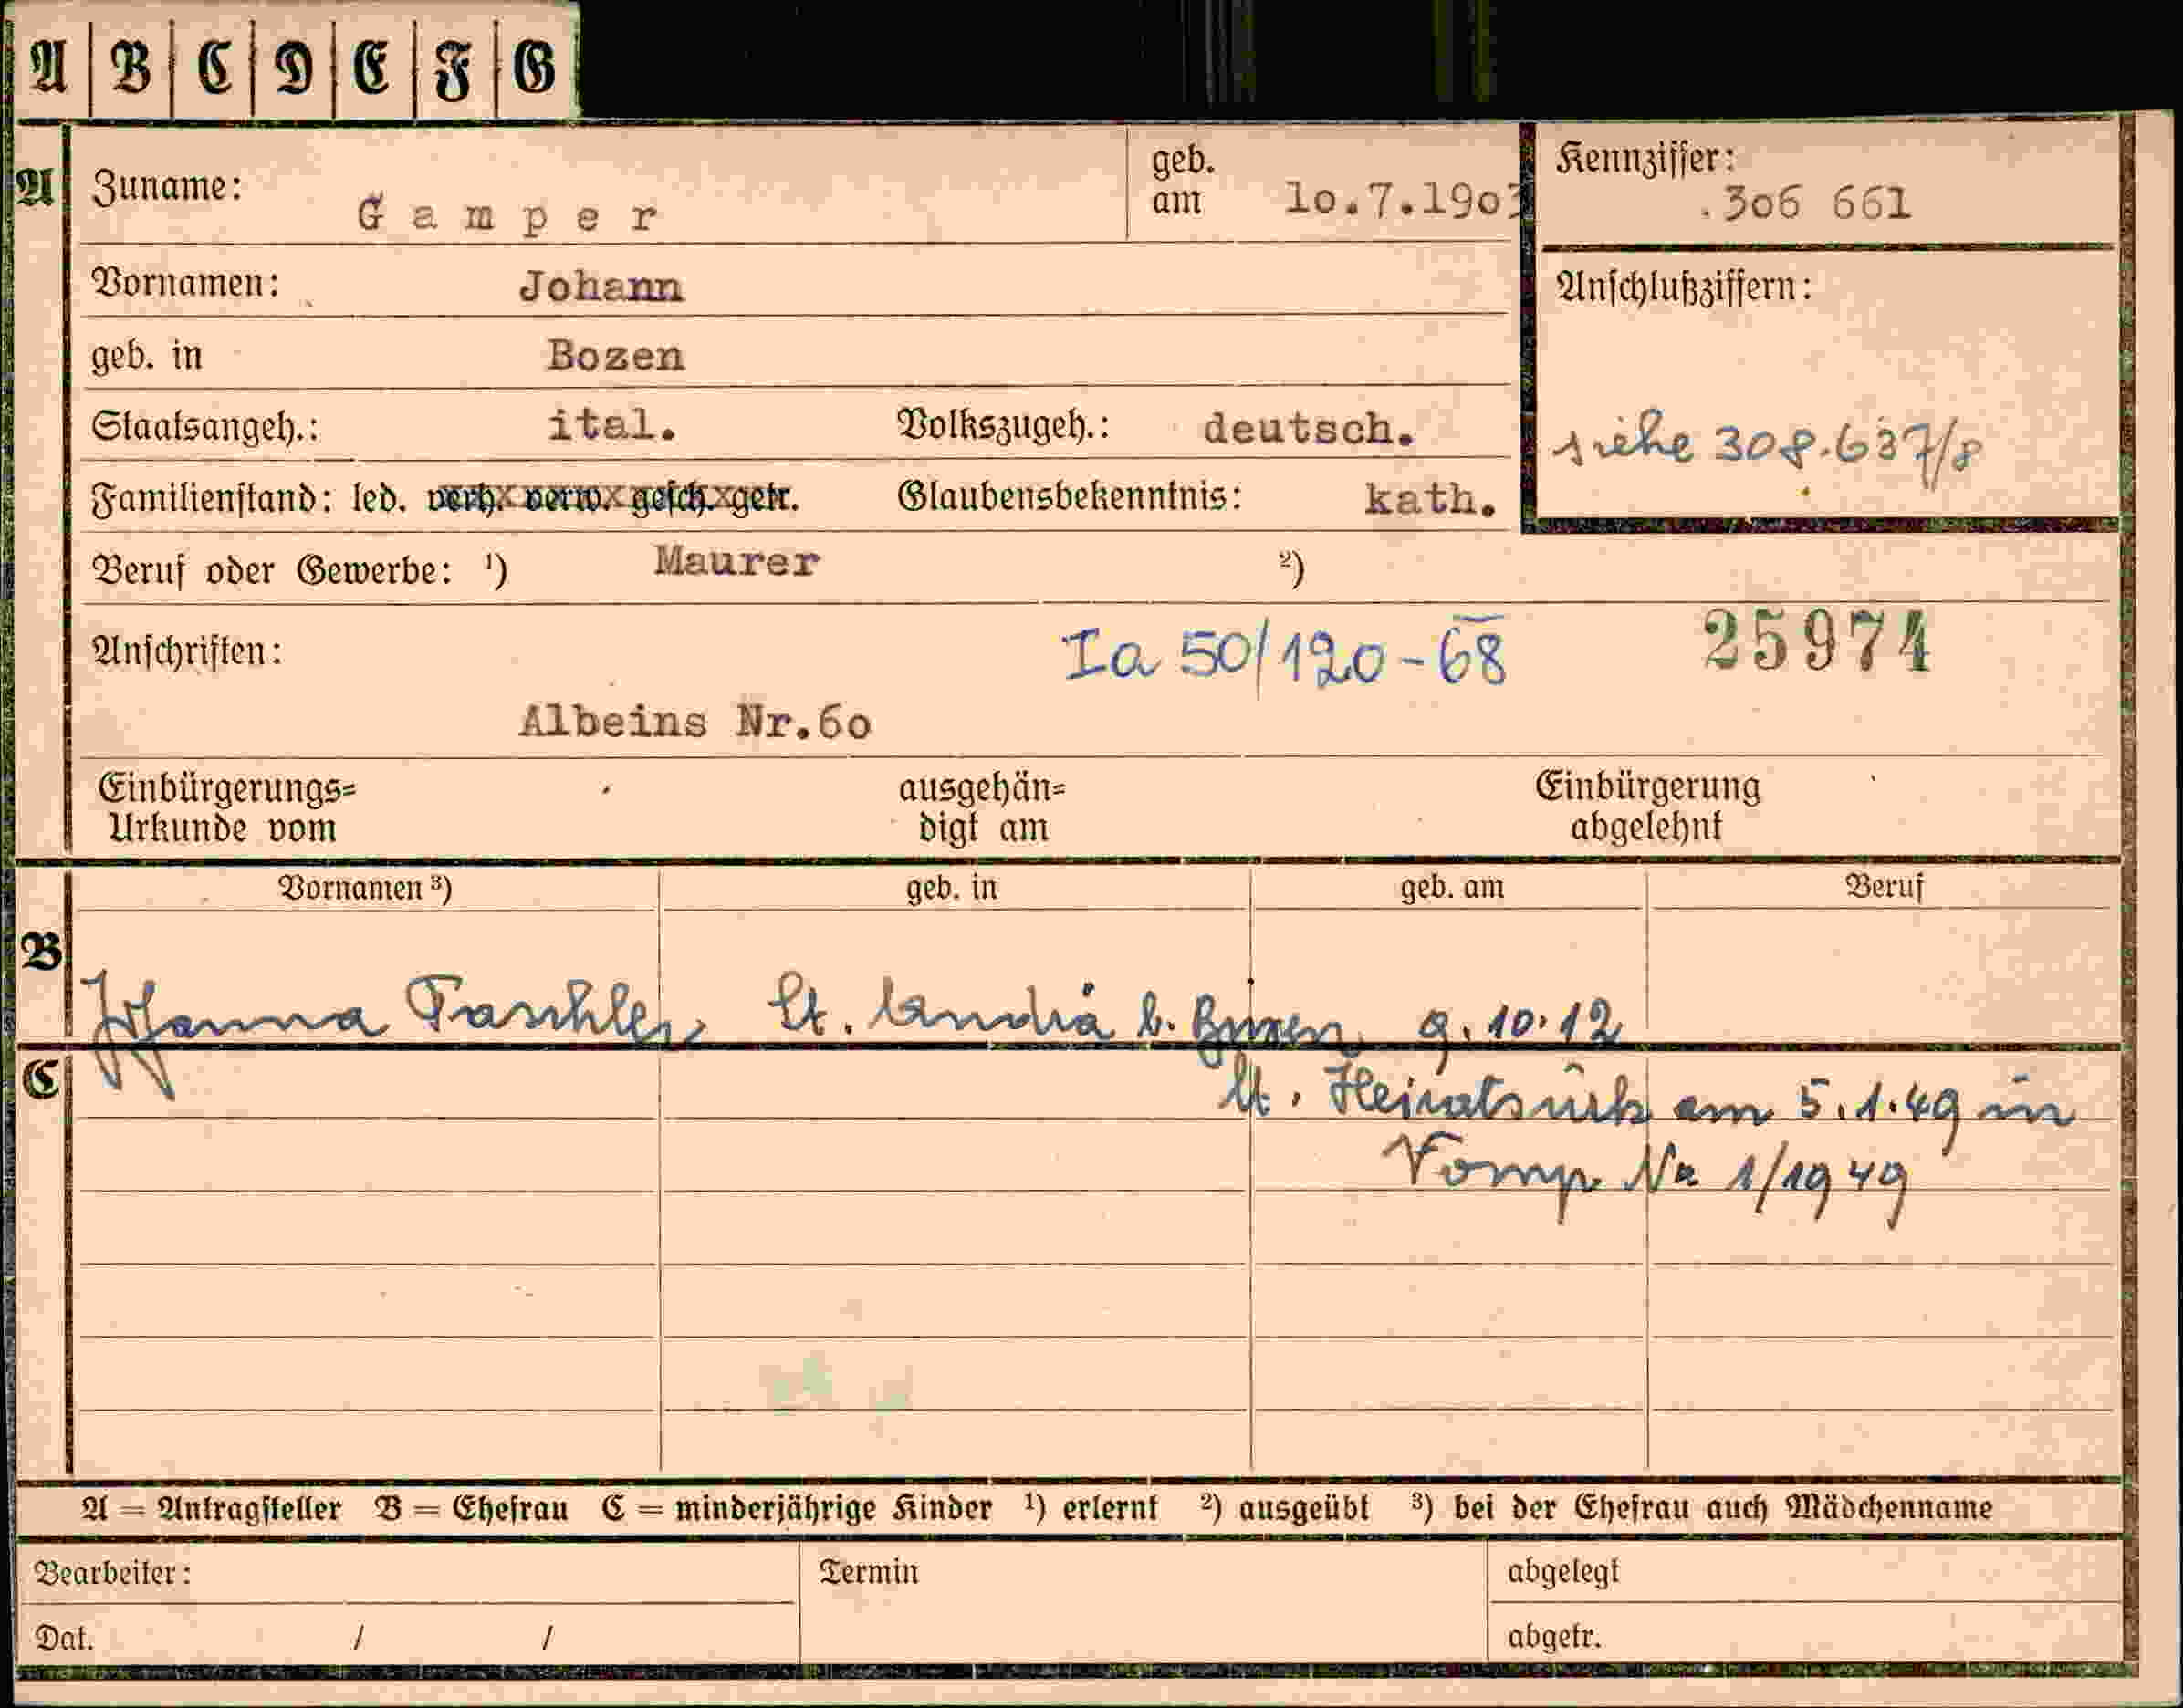 A B C D E F G
A Zuname: Gamper geb. am 10.7.1903 Kennziffer: .306 661
Vornamen: Johann Anschlußziffern:
geb. in Bozen
Staatsangeh.: ital. Volkszugeh.: deutsch. siehe 308.637/8
Familienstand: led. verh. verw. gesch. getr. Glaubensbekenntnis: kath.
Beruf oder Gewerbe: ¹) Maurer ²)
Anschriften: Ia 50/120-68 25974
Albeins Nr.60
Einbürgerungs= ausgehän= Einbürgerung
Urkunde vom digt am abgelehnt
Vornamen ³) geb. in geb. am Beruf
B
Johanna St. Andrä b. Brixen 9.10.12
C
lt. Heiratsurk am 5.1.49 in
Vomp Nr 1/1949
A = Antragsteller B = Ehefrau C = minderjährige Kinder ¹) erlernt ²) ausgeübt ³) bei der Ehefrau auch Mädchenname
Bearbeiter: Termin abgelegt
Dat. / / abgetr.